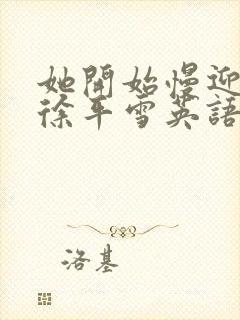 她開始慢迎
徐平雪英語
洛基